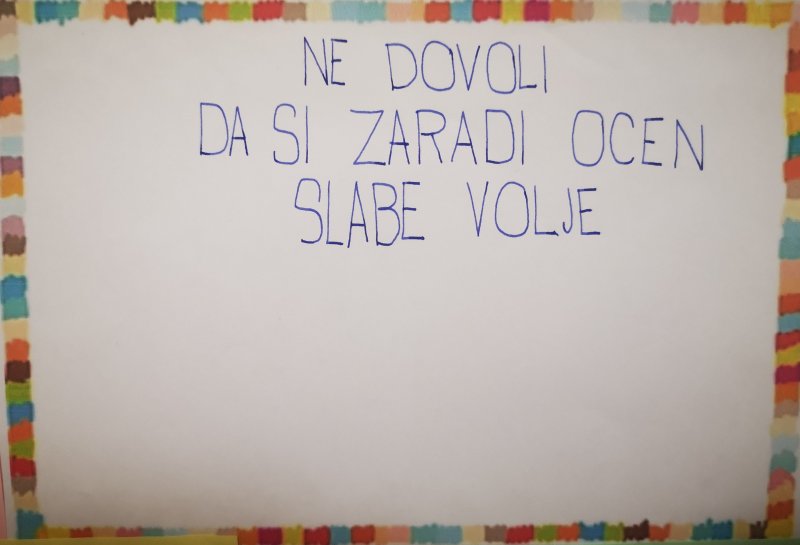 NE DOVOLI
DA SI ZARADI OCEN
SLABE VOLJE